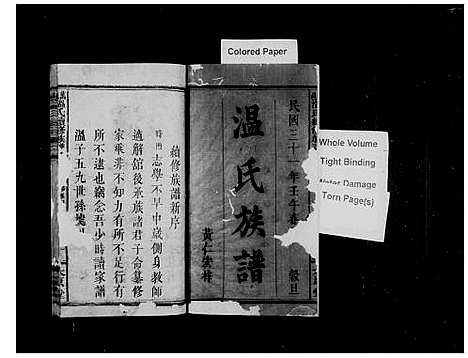 Colored Paper
Whole Volume
Tight Binding
Water Damage
Torn Page(s)
民國三十一年壬午春 穀旦
溫氏族譜
續修族譜新序
志學不早中歲側身教師
適解舘後承族諸君子命纂修
家乘非不知力有所不足行有
所不逮也竊念吾少時讀家譜
溫子五九世孫